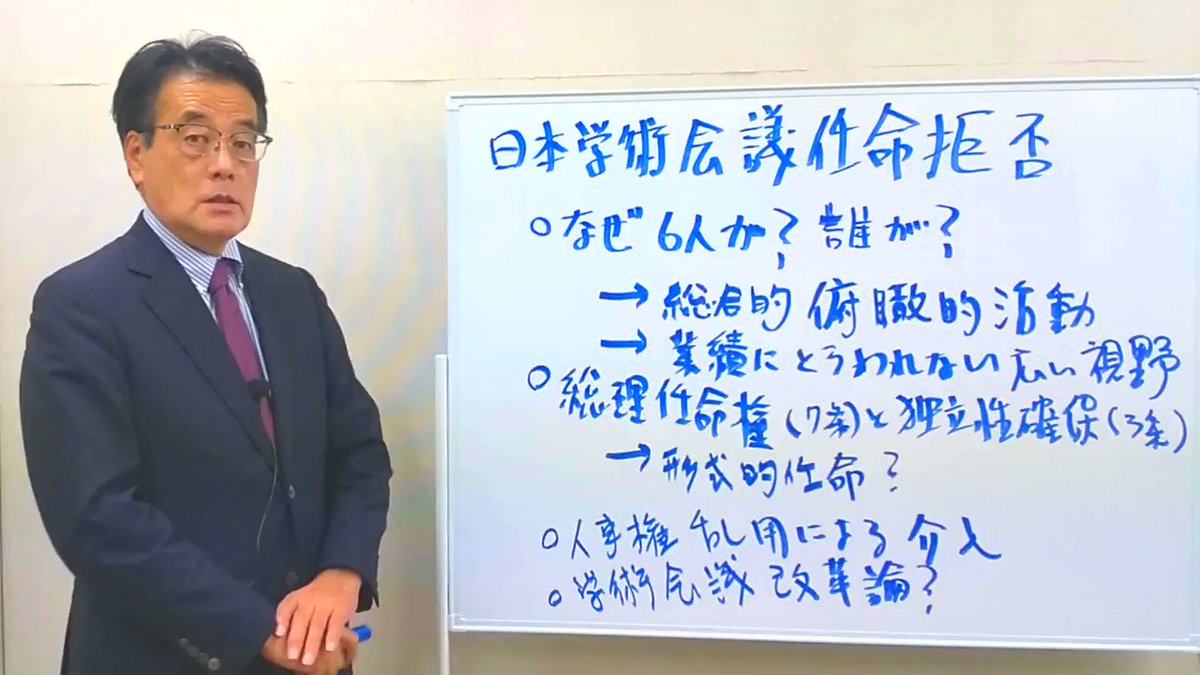 日本学術会議任命拒否
○なぜ6人か? 誰が?
→総合的 俯瞰的活動
→業績にとらわれない広い視野
○総理任命権(7条)と独立性確保(3条)
→形式的任命?
○人事権乱用による介入
○学術会議改革論?